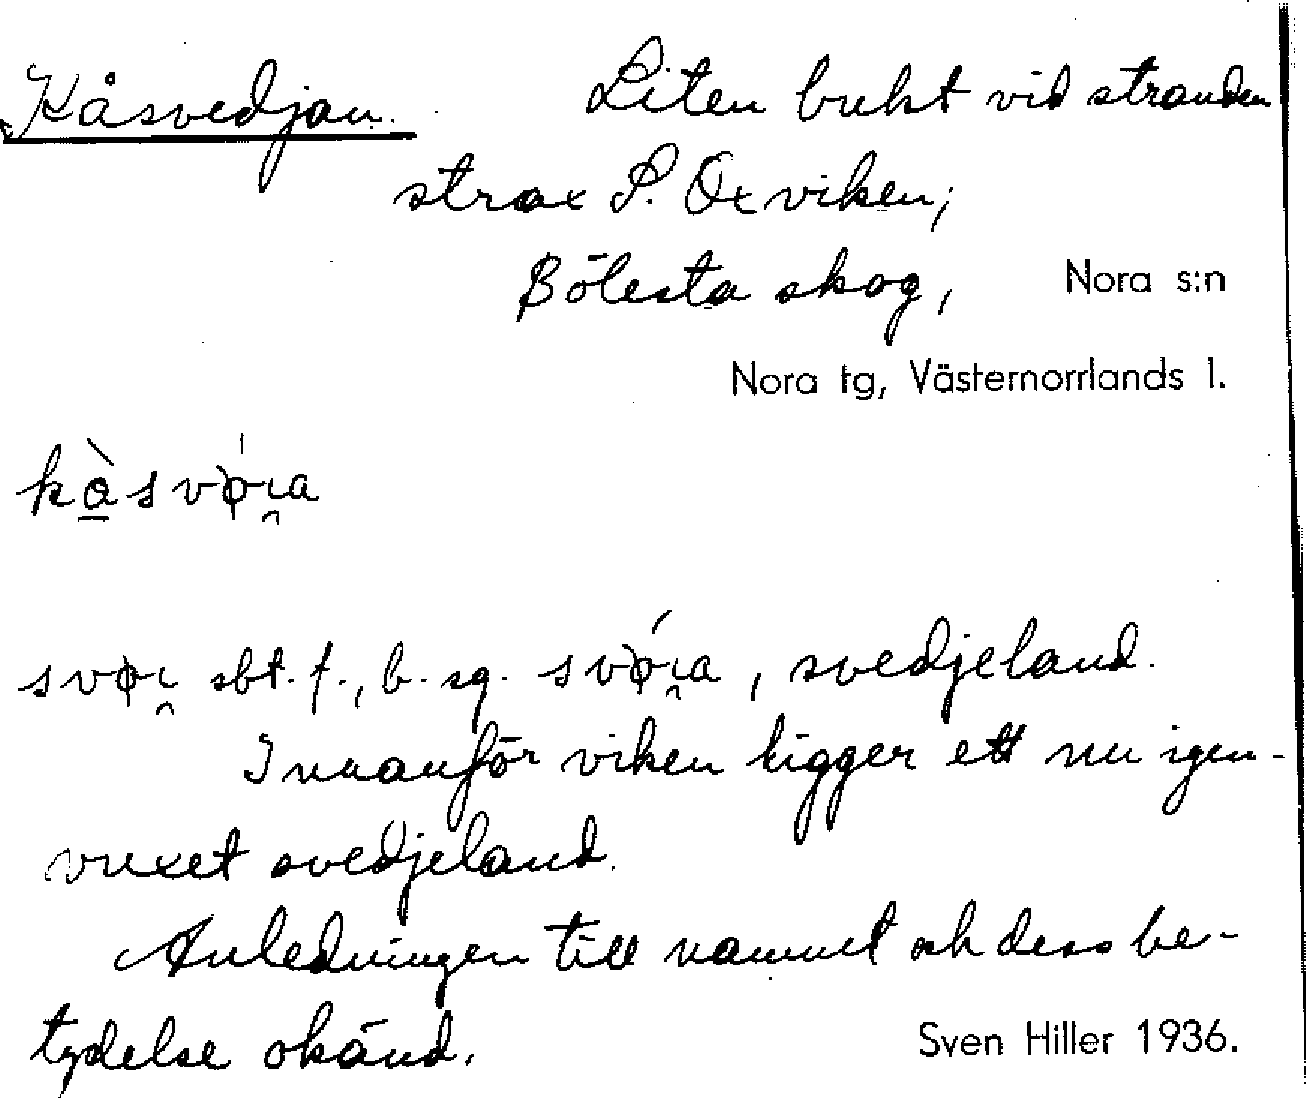 Kåsvedjan. Liten bukt vid stranden
strax S. Oxviken;
Bölesta skog, Nora s:n
Nora tg, Västernorrlands l.
sbt. f., b. sg. , svedjeland.
Innanför viken ligger ett nu igen-
vuxet svedjeland.
Anledningen till namnet och dess be-
tydelse okänd. Sven Hiller 1936.